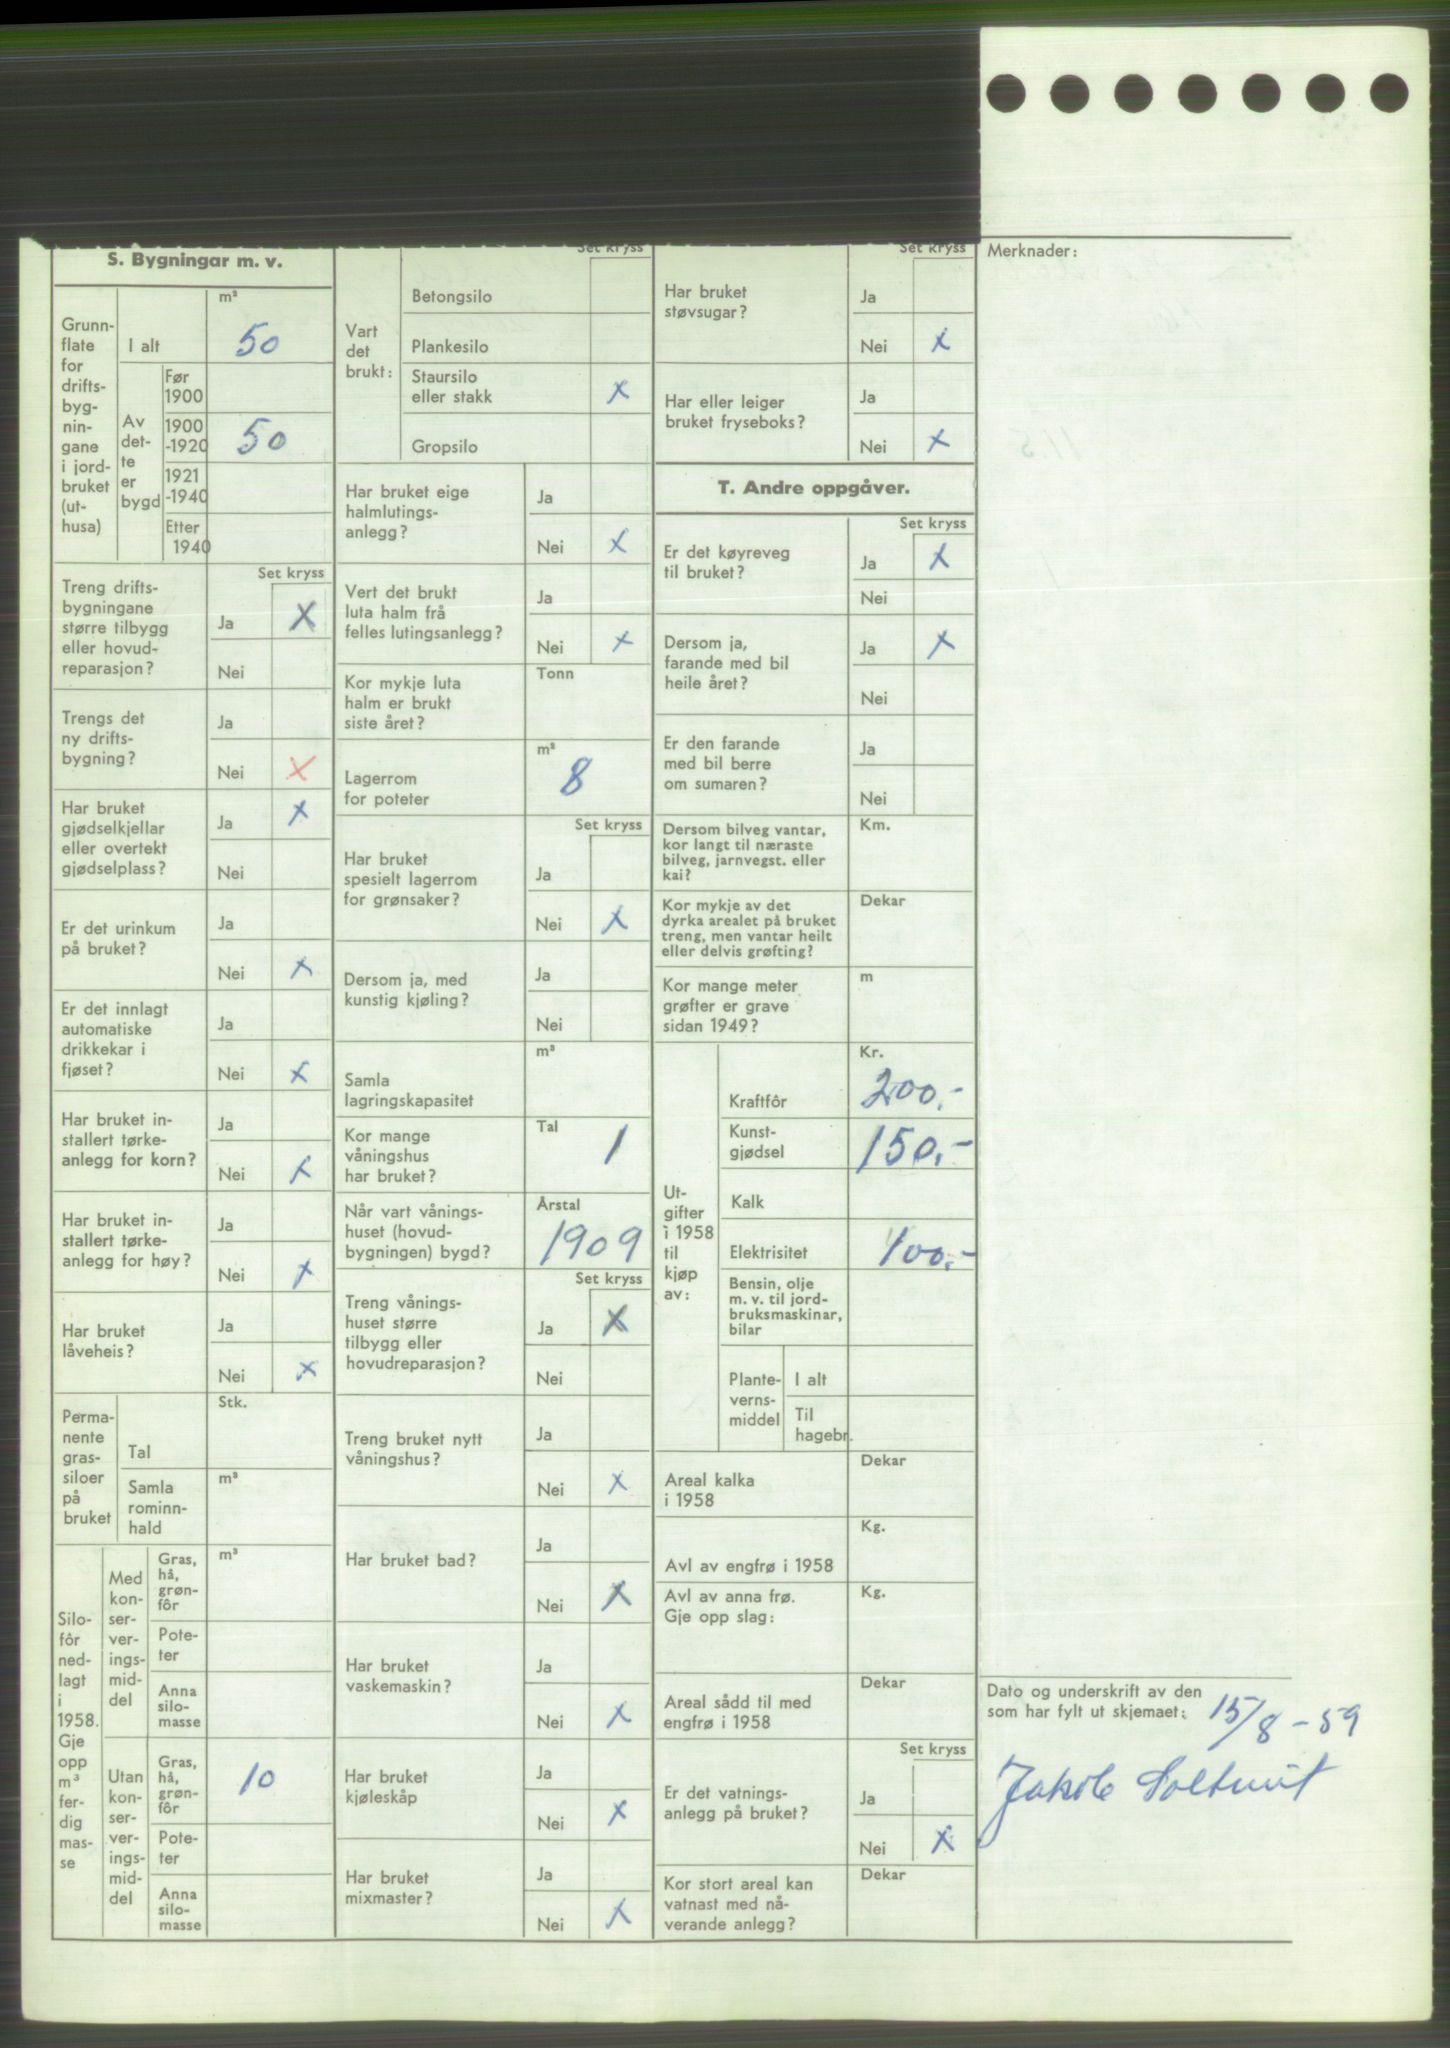 S. Bygningar m. v.
Grunn-
flate
for
drifts-
byg-
nin-
gane
i jord-
bruket
(ut-
husa)
m²
I alt
50
Av
det-
te
er
bygd
Før
1900
1900
-1920
50
1921
-1940
Etter
1940
Set kryss
Treng drifts-
bygningane
større tilbygg
eller hovud-
reparasjon?
Ja X
Nei
Trengs det
ny drifts-
bygning?
Ja
Nei X
Har bruket
gjødselkjellar
eller overtekt
gjødselplass?
Ja X
Nei
Er det urinkum
på bruket?
Ja
Nei X
Er det innlagt
automatiske
drikkekar i
fjøset?
Ja
Nei X
Har bruket in-
stallert tørke-
anlegg for korn?
Ja
Nei X
Har bruket in-
stallert tørke-
anlegg for høy?
Ja
Nei X
Har bruket
låveheis?
Ja
Nei X
Perma-
nente
gras-
siloer
på
bruket
Stk.
Tal
m³
Samla
rominn-
hald
Silo-
fôr
ned-
lagt
i
1958.
Gje
opp
m³
fer-
dig
mas-
se
Med
kon-
ser-
ver-
ings-
mid-
del
m³
Gras,
hå,
grøn-
fôr
Pote-
ter
Anna
silo-
masse
Utan
kon-
ser-
ver-
ings-
mid-
del
Gras,
hå,
grøn-
fôr
10
Pote-
ter
Anna
silo-
masse
Set kryss
Vart
det
brukt:
Betongsilo
Plankesilo
Staursilo
eller stakk
X
Gropsilo
Har bruket eige
halmlutings-
anlegg?
Ja
Nei X
Vert det brukt
luta halm frå
felles lutingsanlegg?
Ja
Nei X
Kor mykje luta
halm er brukt
siste året?
Tonn
Lagerrom
for poteter
m²
8
Set kryss
Har bruket
spesielt lagerrom
for grønsaker?
Ja
Nei X
Dersom ja, med
kunstig kjøling?
Ja
Nei
Samla
lagringskapasitet
m³
Kor mange
våningshus
har bruket?
Tal
1
Når vart vånings-
huset (hovud-
bygningen) bygd?
Årstal
1909
Set kryss
Treng vånings-
huset større
tilbygg eller
hovudreparasjon?
Ja X
Nei
Treng bruket nytt
våningshus?
Ja
Nei X
Har bruket bad?
Ja
Nei X
Har bruket
vaskemaskin?
Ja
Nei X
Har bruket
kjøleskåp
Ja
Nei X
Har bruket
mixmaster?
Ja
Nei X
Set kryss
Har bruket
støvsugar?
Ja
Nei X
Har eller leiger
bruket fryseboks?
Ja
Nei X
T. Andre oppgåver.
Set kryss
Er det køyreveg
til bruket?
Ja X
Nei
Dersom ja,
farande med bil
heile året?
Ja X
Nei
Er den farande
med bil berre
om sumaren?
Ja
Nei
Dersom bilveg vantar,
kor langt til næraste
bilveg, jarnvegst. eller
kai?
Km.
Kor mykje av det
dyrka arealet på bruket
treng, men vantar heilt
eller delvis grøfting?
Dekar
Kor mange meter
grøfter er grave
sidan 1949?
m
Ut-
gifter
i 1958
til
kjøp
av:
Kr.
Kraftfôr
200.-
Kunst-
gjødsel
150.-
Kalk
Elektrisitet
100.-
Bensin, olje
m. v. til jord-
bruksmaskinar,
bilar
Plante-
verns-
middel
I alt
Til
hagebr.
Areal kalka
i 1958
Dekar
Avl av engfrø i 1958
Kg.
Avl av anna frø.
Gje opp slag:
Kg.
Areal sådd til med
engfrø i 1958
Dekar
Set kryss
Er det vatnings-
anlegg på bruket?
Ja
Nei X
Kor stort areal kan
vatnast med nå-
verande anlegg?
Dekar
Merknader:
Dato og underskrift av den
som har fylt ut skjemaet:
15/8-59